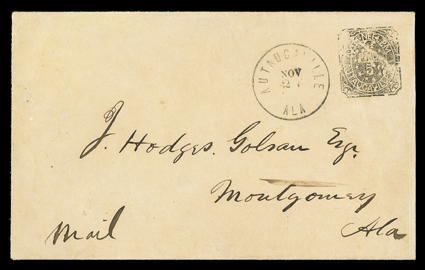 AUTAUGAVILLE
NOV
ALA
5
J. Hodges. Golsan Esq.
Montgomery
Mail
Ala